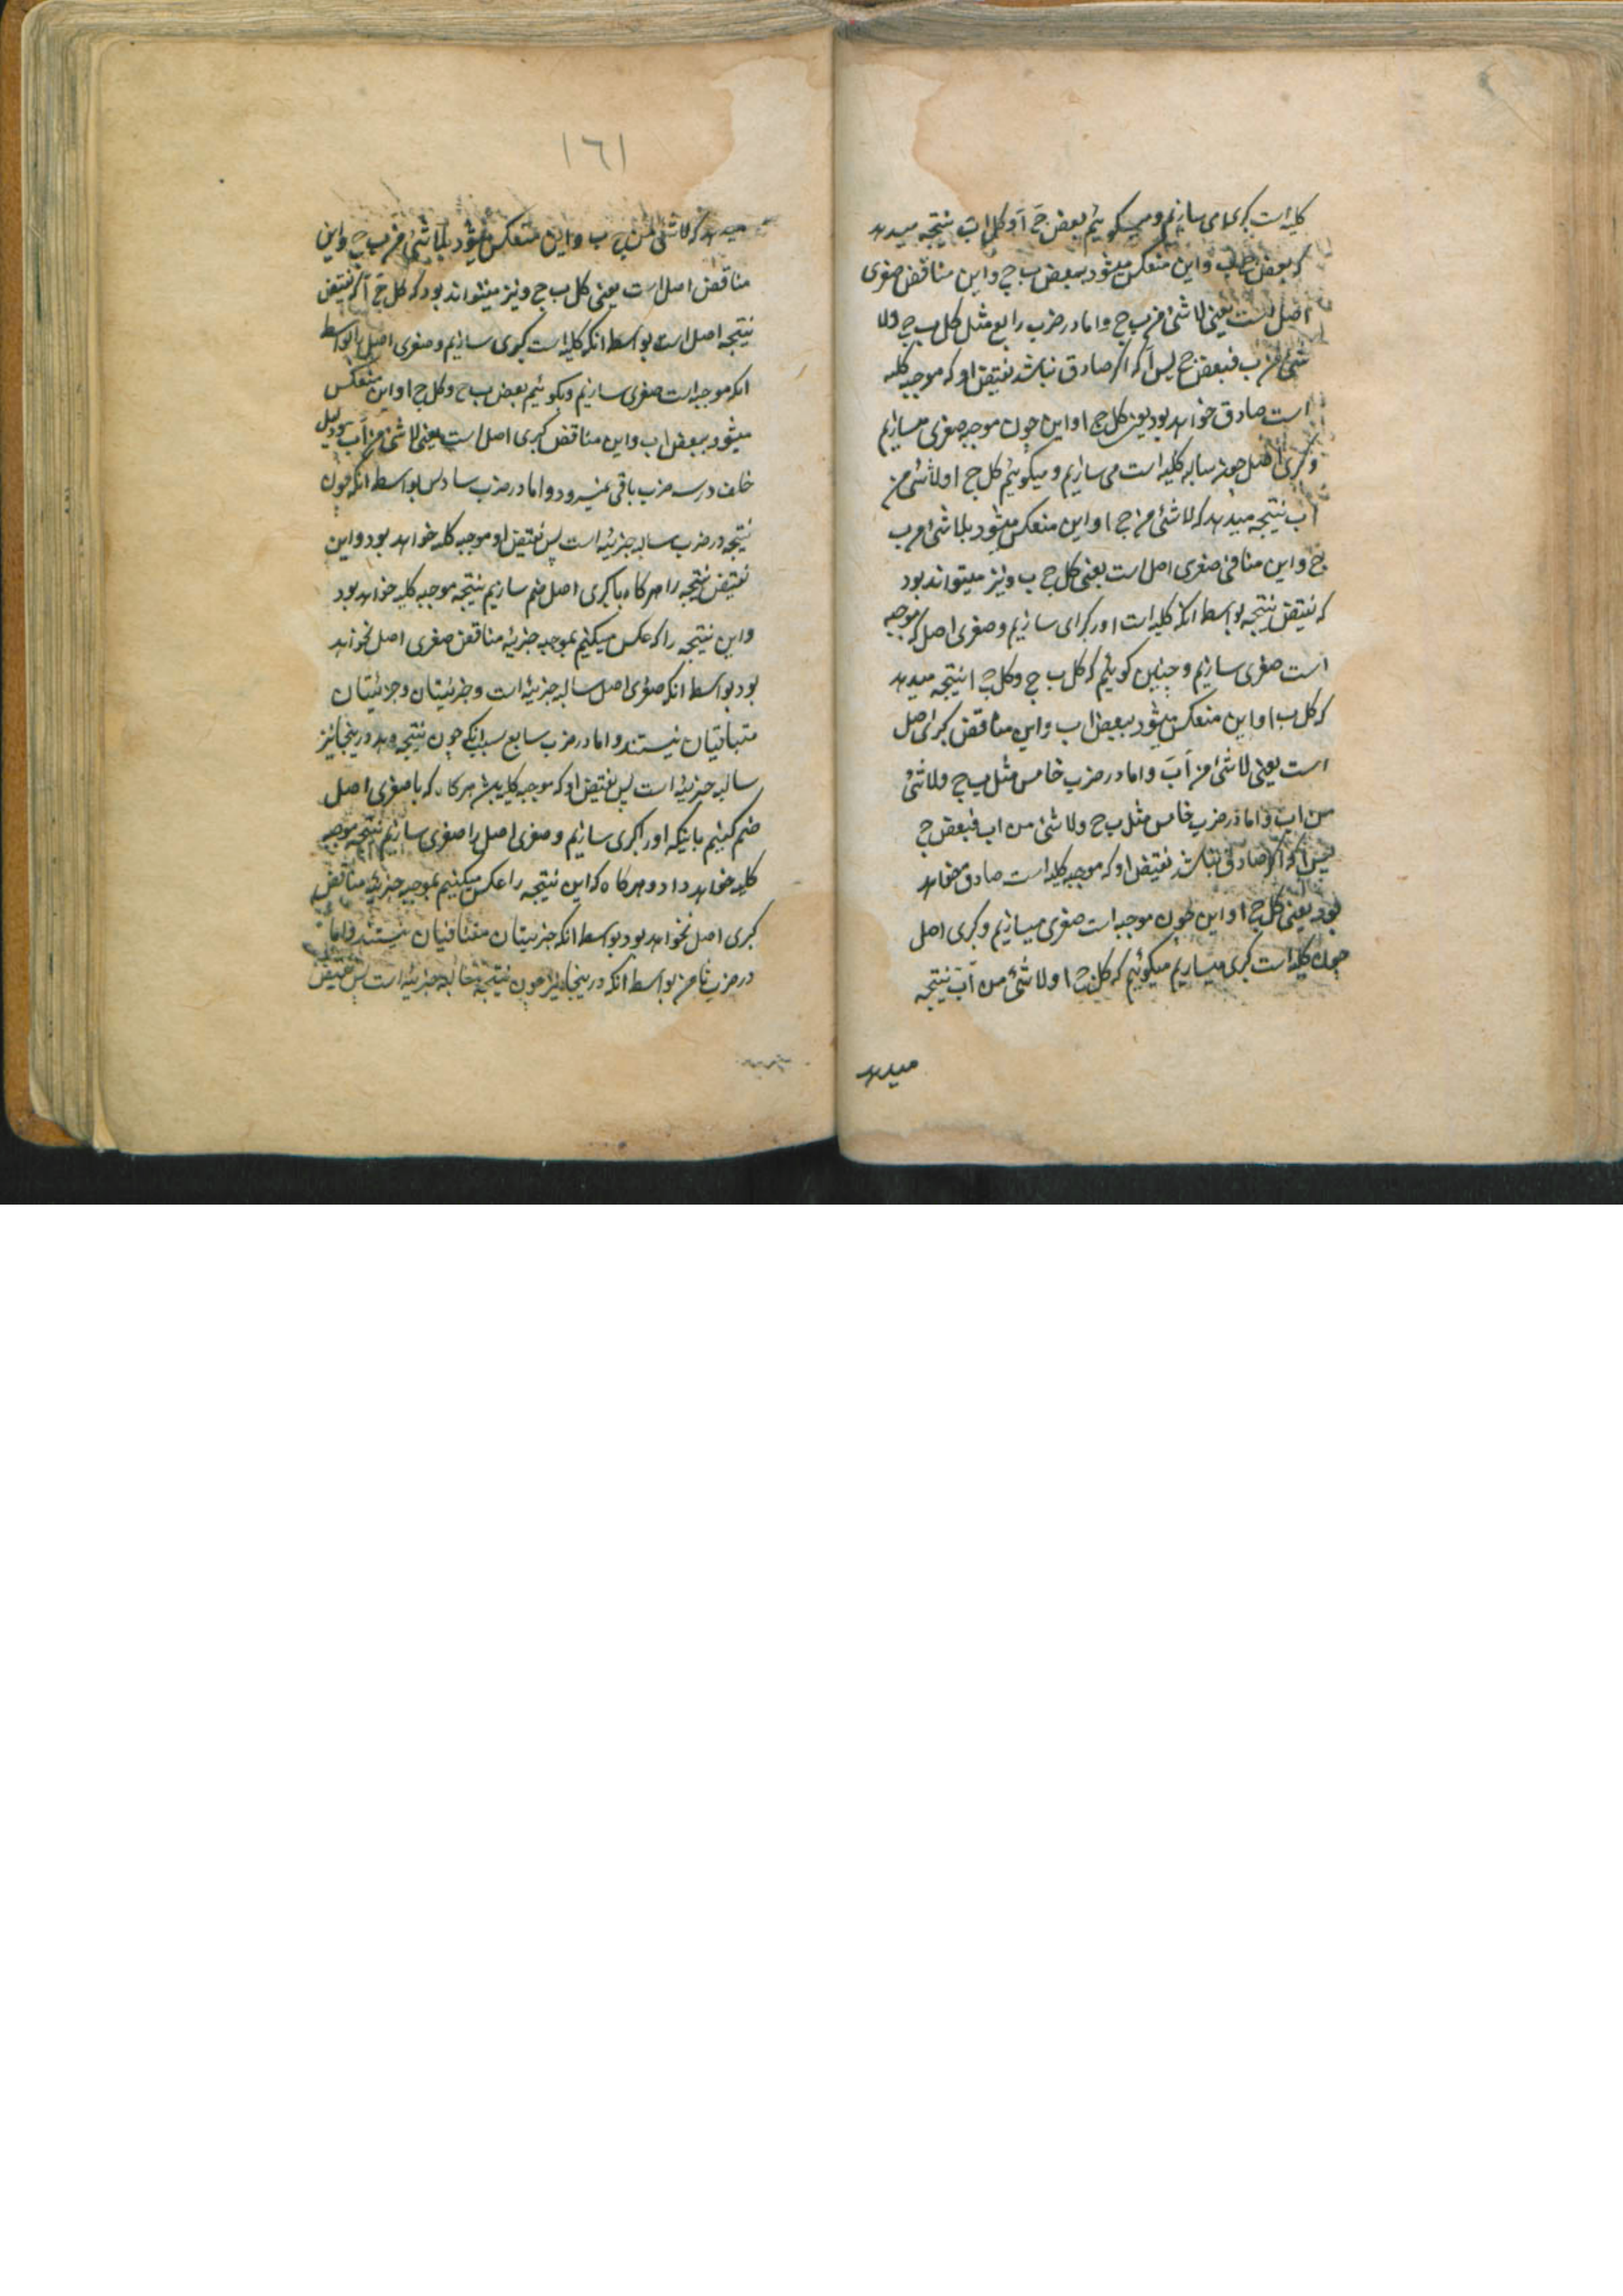 کلیه است کبرای سازیم و میگوییم بعض ج ا و کل ا ب نتیجه میدهد
که بعض ج ب و این منعکس میشود ببعض ب ج و این مناقض صغری
اصل است یعنی لا شئ من ب ج و اما در ضرب رابع مثل کل ب ج و لا
شئ من ا ب فبعض ج لیس ا که اگر صادق نباشد نقیض او که موجبه کلیه
است صادق خواهد بود یعنی کل ج ا و این چون موجبه صغری میسازیم
و کبری اصل چون سالبه کلیه است می سازیم و میگوئیم کل ج ا و لا شئ من
ا ب نتیجه میدهد که لا شئ من ج ا و این منعکس میشود بلا شئ من ب
ج و این منافی صغری اصل است یعنی کل ج ب و نیز میتواند بود
که نقیض نتیجه بواسطه انکه کلیه است اورا کبرای سازیم و صغری اصل که موجبه
است صغری سازیم و چنین گوییم که کل ب ج و کل ج ا نتیجه میدهد
که کل ب ا و این منعکس میشود ببعض ا ب و این مناقض کبرای اصل
است یعنی لا شئ من ا ب و اما در ضرب خامس مثل ب ج و لا شئ
من ا ب و اما در ضرب خامس مثل ب ج و لا شئ من ا ب فبعض ج
لیس ا که اگر صادق نباشد نقیض او که موجبه کلیه است صادق خواهد
بود یعنی کل ج ا و این چون موجبه است صغری میسازیم و کبری اصل
چون کلیه است کبری میسازیم میگوئیم که کل ج ا و لا شئ من ا ب نتیجه
میدهد
١٦١
میدهد که لا شئ من ج ب و این منعکس میشود بلا شئ من ب ج و این
مناقض اصل است یعنی کل ب ج و نیز میتواند بود که کل ج ا که نقیض
نتیجه اصل است بواسطه انکه کلیه است کبری سازیم و صغری اصل را بواسطه
انکه موجبه است صغری سازیم و بگوئیم بعض ب ج و کل ج ا و این منعکس
میشود ببعض ا ب و این مناقض کبری اصل است یعنی لا شئ من ا ب و دلیل
خلف در سه ضرب باقی نمیرود و اما در ضرب سادس بواسطه انکه چون
نتیجه در ضرب سالبه جزئیه است پس نقیض او موجبه کلیه خواهد بود و این
نقیض نتیجه را هرگاه با کبری اصل ضم سازیم نتیجه موجبه کلیه خواهد بود
و این نتیجه را که عکس میکنیم بموجبه جزئیه مناقض صغری اصل نخواهد
بود بواسطه انکه صغری اصل سالبه جزئیه است و جزئیتان و جزئیتان
متباقیان نیستند و اما در ضرب سابع بسبب انکه چون نتیجه وی در ینجا نیز
سالبه جزئیه است پس نقیض او که موجبه کلیه باشد هرگاه که با صغری اصل
ضم کنیم باینکه اورا کبری سازیم و صغری اصل را صغری سازیم نتیجه موجبه
کلیه خواهد داد و هرگاه که این نتیجه را عکس میکنیم بموجبه جزئیه مناقض
کبری اصل نخواهد بود بواسطه انکه جزئیتان متنافیان نیستند و اما
در ضرب ثامن بواسطه انکه در ینجا نیز چون نتیجه سالبه جزئیه است پس نقیض